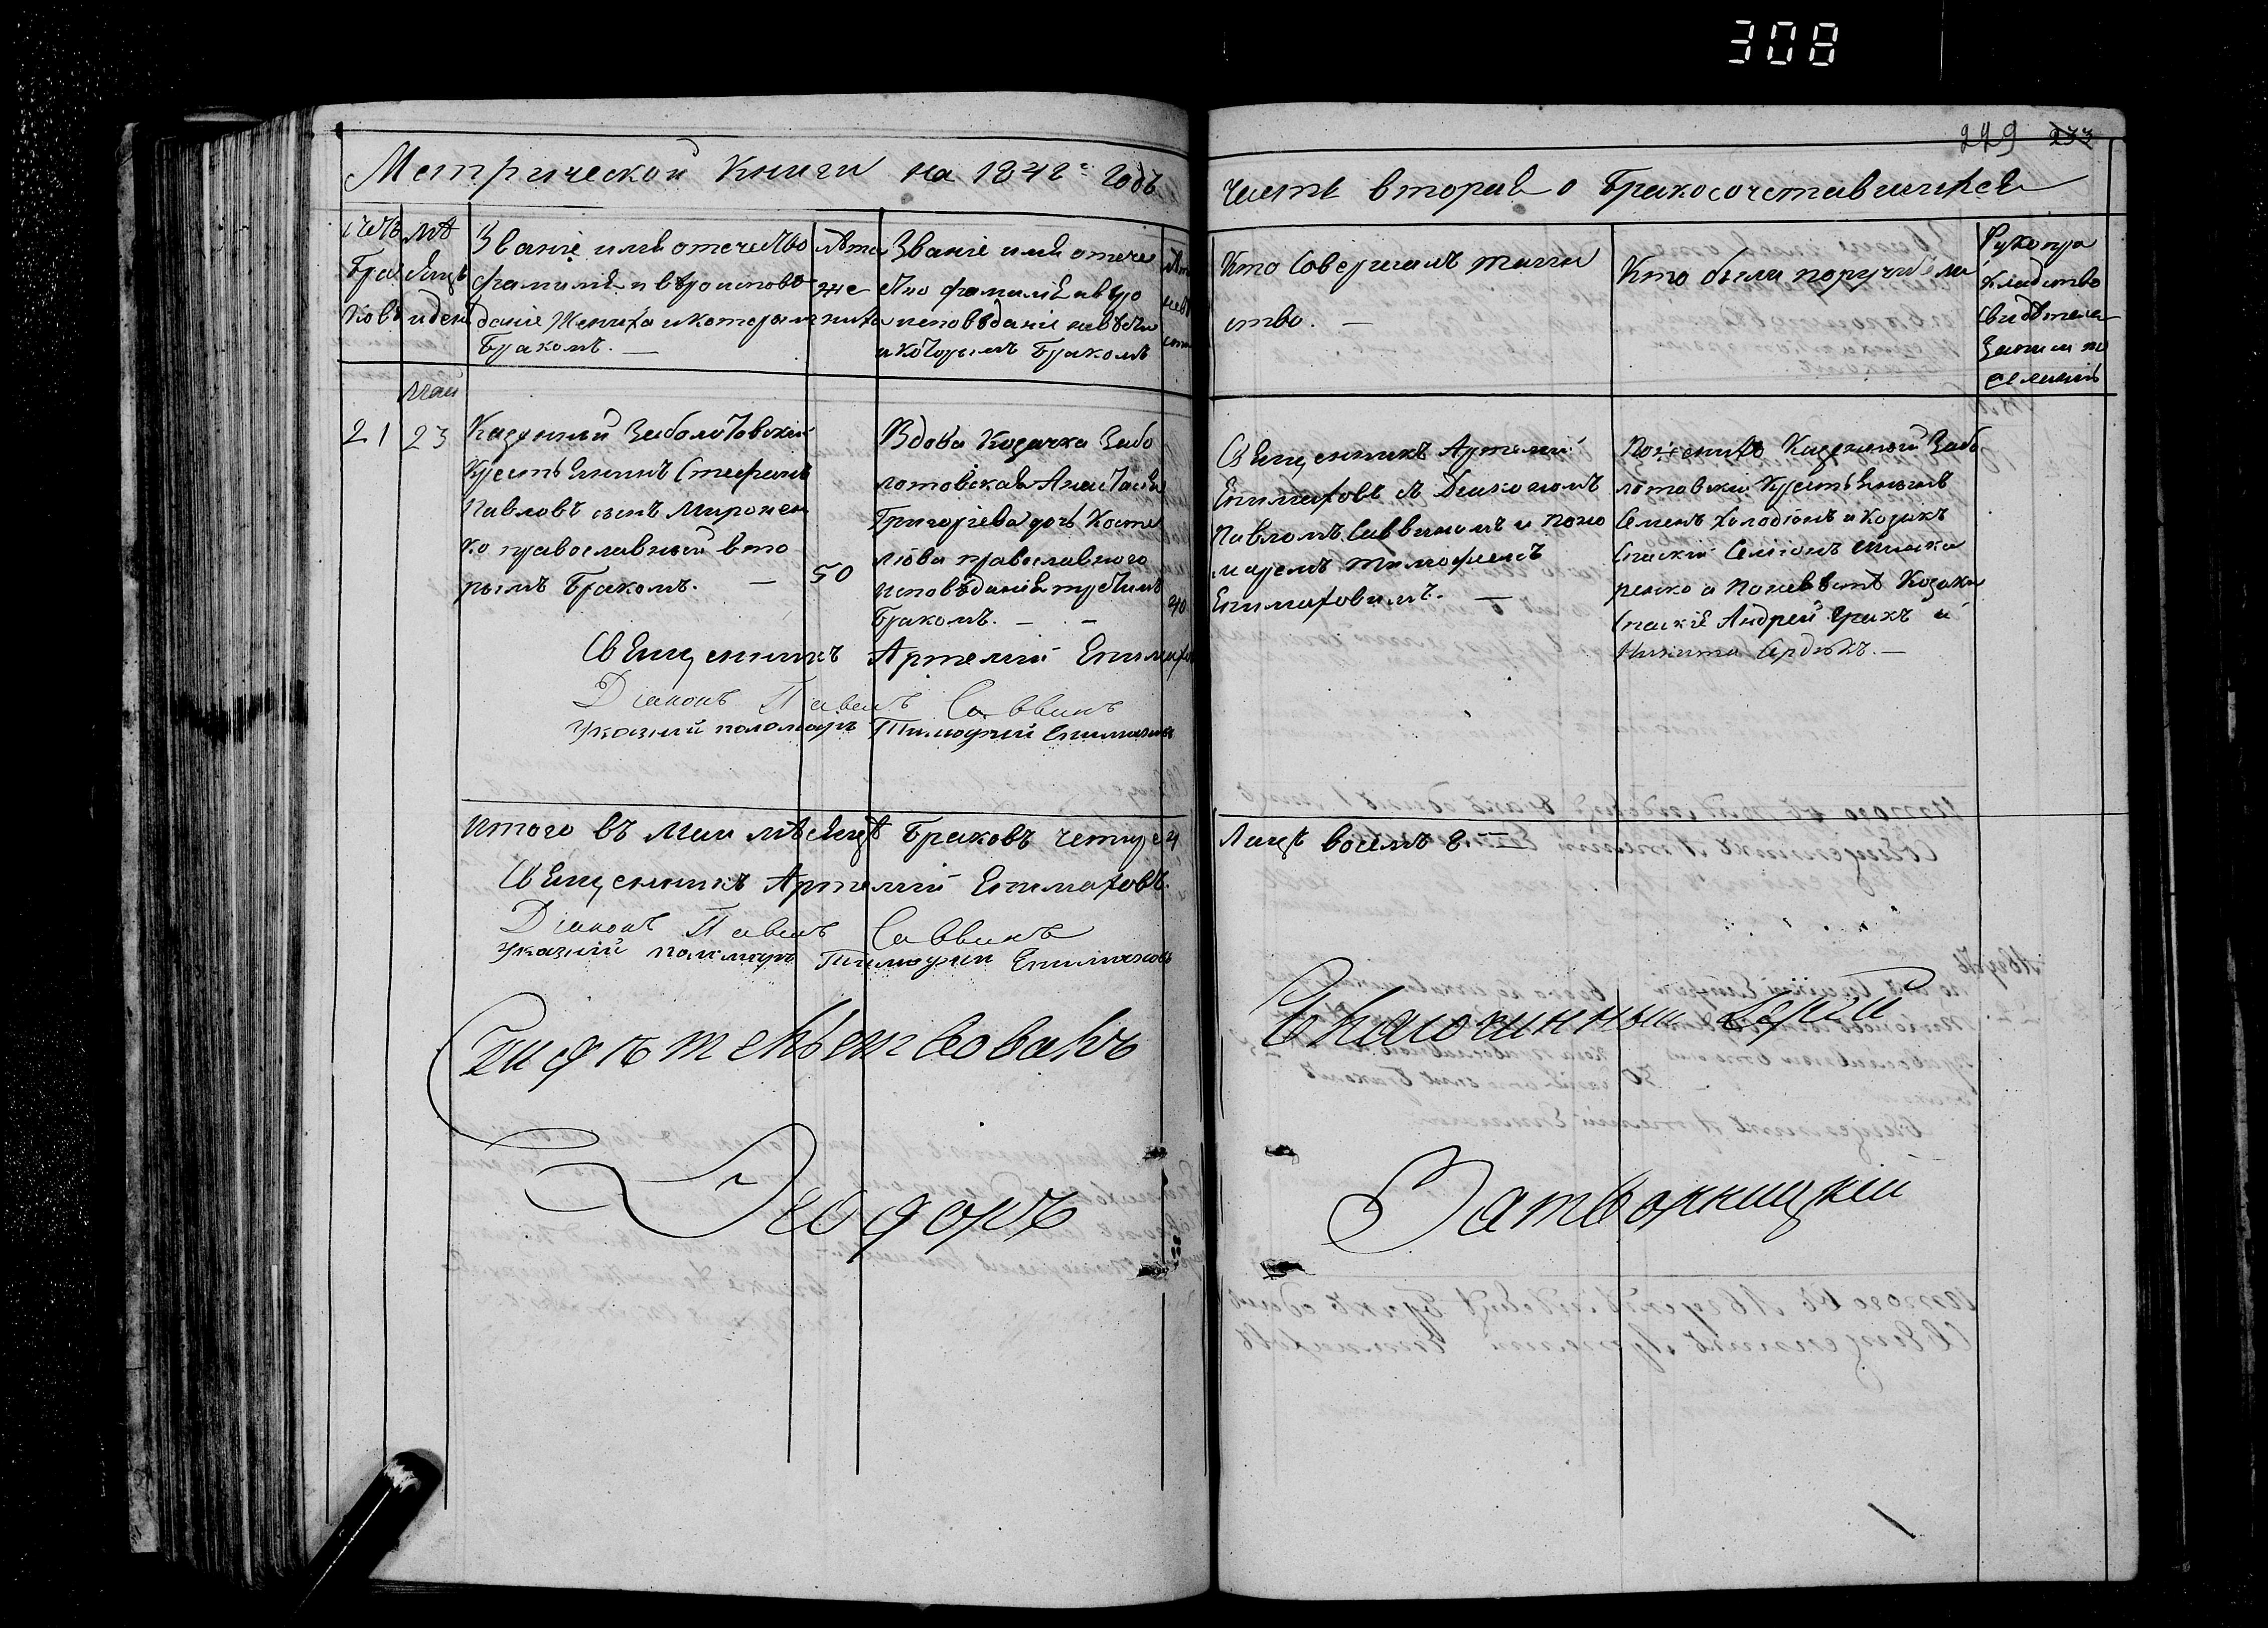 308
229 233
Метрической Книги на 1842 г. Годъ
часть вторая о Бракосочетавшихся
счетъ
Бра
ковъ
мѣ
сяцъ
и день
Званіе имя отечество
фамилія и вѣроисповѣ
даніе Жениха и которым
Бракомъ. —
лѣта
же
ниха
Званіе имя отече
ство фамилія и вѣро
исповѣданіе невѣсты
и которымъ Бракомъ
лѣта
невѣ
сты
Кто Совершалъ таин
ство. —
Кто были поручители
Рукопри
кладство
свидѣтелей
записи по
желанію
Май
21
23
Казенный Заболотовскій
Крестьянинъ Стефанъ
Павловъ сынъ Миронен
ко православный вто
рымъ Бракомъ. —
50
Вдова Козачка Забо
лотовская Анастасія
Григоріева дочь Косте
православного
исповѣданія третимъ
Бракомъ. — —
40
Священникъ Артемій
Епимаховъ съ Діакономъ
Павломъ Саввинымъ и поно
маремъ Тимофеемъ
Епимаховымъ. —
По женихѣ Казенный Забо
лотовскій Крестьянинъ
Семенъ Холодіонъ и Козакъ
Спаскій Семіонъ
ренко а по невѣстѣ Козаки
Спаскіе Андрей Грихъ и
Никита Сердюкъ. —
Священникъ Артемій Епимахов
Діаконъ Павелъ Саввинъ
Указный поломарь Тимофей Епимаховъ
Итого въ Маи мѣсяцѣ Браковъ четыре 4
Лицъ восемь 8. —
Священникъ Артемій Епимаховъ.
Діаконъ Павелъ Саввинъ
Указный паламарь Тимофей Епимаховъ
Свидѣтельствовалъ
Благочинный Іерей
Феодоръ
Затворницкій